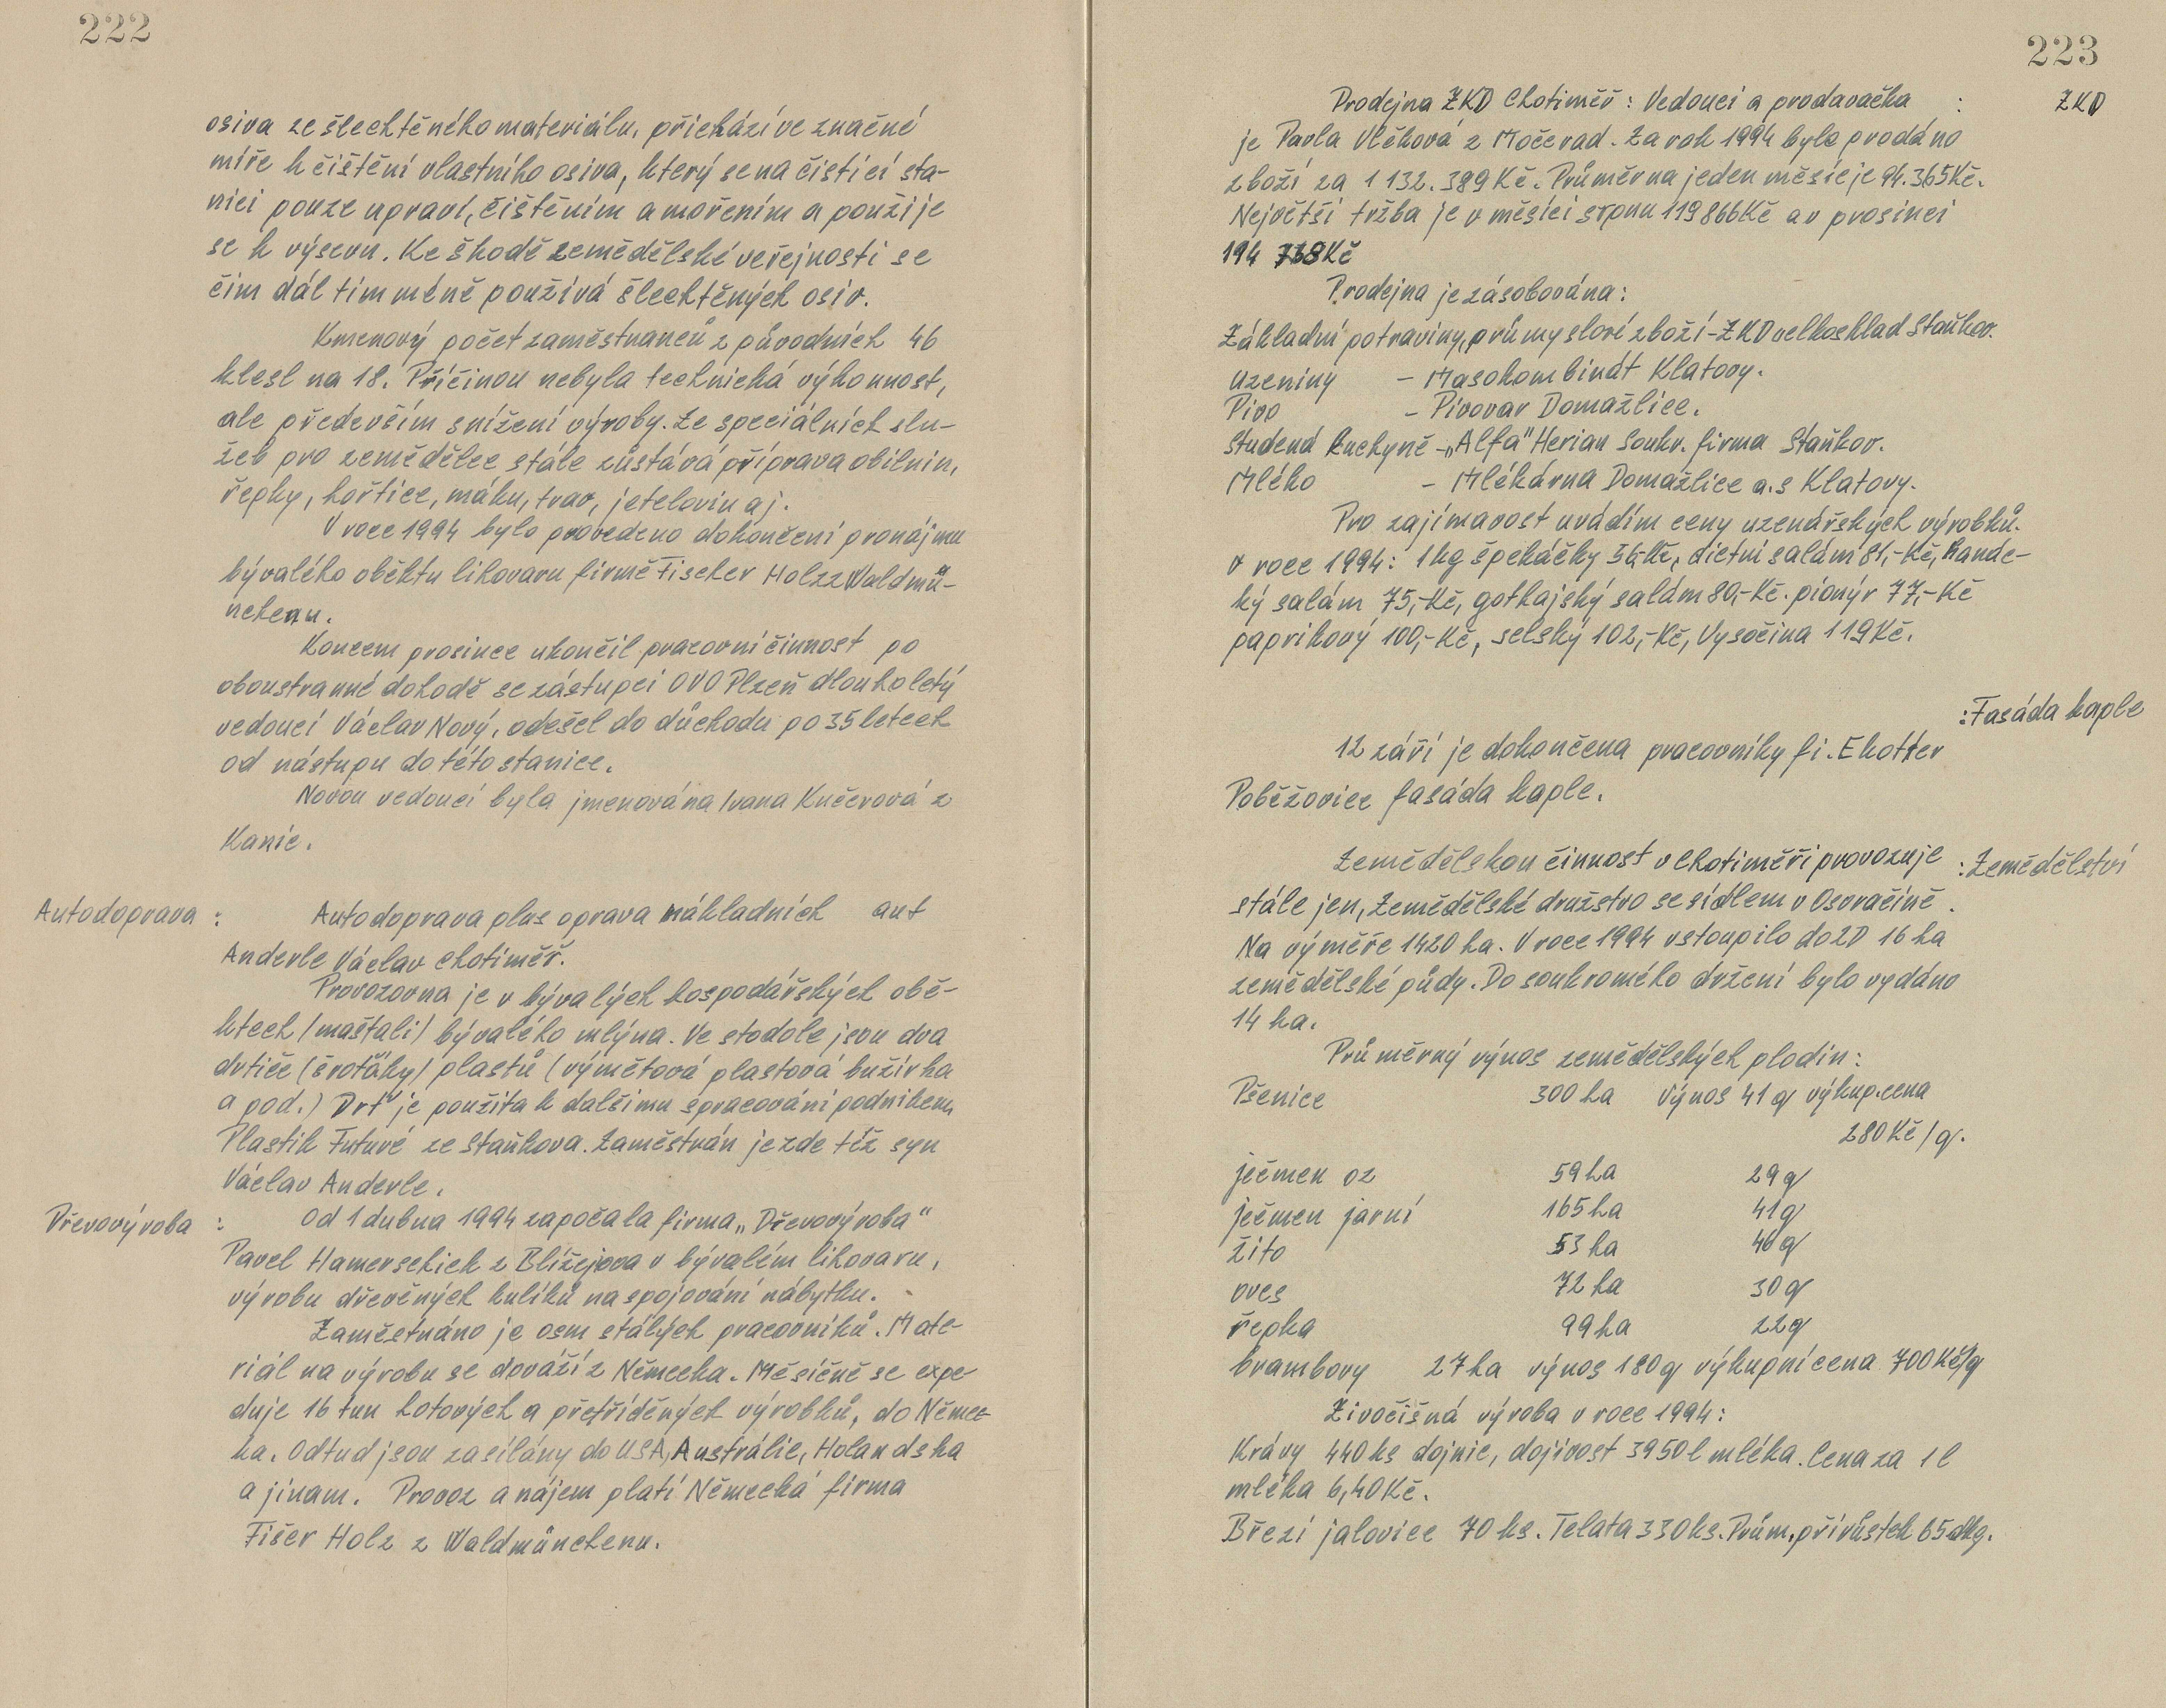 222
osiva ze šlechtěného materiálu, přichází ve značné
míře k čištění vlastního osiva, který se na čistící sta-
nici pouze upraví, čištěním a mořením a použije
se k výsevu. Ke škodě zemědělské veřejnosti se
čim dál tim méně používá šlechtěných osiv.
Kmenový počet zaměstnanců z původních 46
klesl na 18. Příčinou nebyla technická výkonnost,
ale především snížení výroby. Ze speciálních slu-
žeb pro zemědělce stále zůstává příprava obilnin,
řepky, hořtice, máku, trav, jetelovin aj.
V roce 1994 bylo provedeno dokončení pronájmu
bývalého obektu lihovaru firmě Fischer Holzz Waldmü-
nchenu.
Koncem prosince ukončil pracovní činnost po
oboustranné dohodě se zástupci OVO Plzeň dlouholetý
vedoucí Václav Nový, odešel do důchodu po 35 letech
od nástupu do této stanice.
Novou vedoucí byla jmenována Ivana Kučerová z
Kanic.
Autodoprava :
Autodoprava plus oprava nákladních aut
Anderle Václav Chotiměř.
Provozovna je v bývalých hospodářských obě-
ktech /maštali/ bývalého mlýna. Ve stodole jsou dva
drtiče (šroťáky) plastů (výmětová plastová bužírka
a pod.) Drť je použita k dalšimu spracování podnikem
Plastik Futuré ze Staňkova. Zaměstnán je zde též syn
Václav Anderle.
Dřevovýroba :
Od 1 dubna 1994 započala firma „Dřevovýroba"
Pavel Hamerschich z Blížejova v bývalém lihovaru,
výrobu dřevěných kulíků na spojování nábytku.
Zaměstnáno je osm stálých pracovníků. Mate-
riál na výrobu se dováží z Německa. Měsíčně se expe-
duje 16 tun hotových a přetříděných výrobků, do Němec-
ka. Odtud jsou zasílány do USA, Austrálie, Holandska
a jinam. Provoz a nájem platí Německá firma
Fišer Holz z Waldmünchenu.
223
Prodejna ZKD Chotiměř: Vedoucí a prodavačka :
ZKD
je Pavla Vlčková z Močerad. Za rok 1994 bylo prodáno
zboží za 1 132.389 Kč. Průměr na jeden měsíc je 94.365 Kč.
Největší tržba je v měsíci srpnu 119 866 Kč a v prosinci
194 738 Kč
Prodejna je zásobována:
Základní potraviny, průmyslové zboží - ZKD velkosklad Staňkov.
Uzeniny - Masokombinát Klatovy.
Pivo - Pivovar Domažlice.
Studená kuchyně - „Alfa" Herian Soukr. firma Staňkov.
Mléko - Mlékárna Domažlice a.s Klatovy.
Pro zajímavost uvádím ceny uzenářských výrobků.
v roce 1994: 1 kg špekáčky 56,- Kč, dietní salám 81,- Kč, hande-
ký salám 75,- Kč, gothajský salám 80,- Kč. pionýr 77,- Kč
paprikový 100,- Kč, selský 102,- Kč, Vysočina 119 Kč.
:Fasáda kaple
12 září je dokončena pracovníky fi. Ekotter
Poběžovice fasáda kaple.
Zemědělskou činnost v Chotiměři provozuje
:Zemědělství
stále jen, Zemědělské družstvo se sídlem v Osvračíně.
Na výměře 1420 ha. V roce 1994 vstoupilo do ZD 16 ha
zemědělské půdy. Do soukromého držení bylo vydáno
14 ha.
Průměrný výnos zemědělských plodin:
Pšenice 300 ha Výnos 41 q výkup.cena
280 Kč/q.
ječmen oz 59 ha 29 q
ječmen jarní 165 ha 41 q
žito 53 ha 40 q
oves 72 ha 30 q
řepka 99 ha 22 q
brambory 27 ha výnos 180 q výkupní cena 700 Kč/q
Živočišná výroba v roce 1994:
Krávy 440 ks dojnic, dojivost 3950 l mléka. Cena za 1 l
mléka 6,40 Kč.
Březí jalovice 70 ks. Telata 330 ks. Prům. přírůstek 65 dkg.